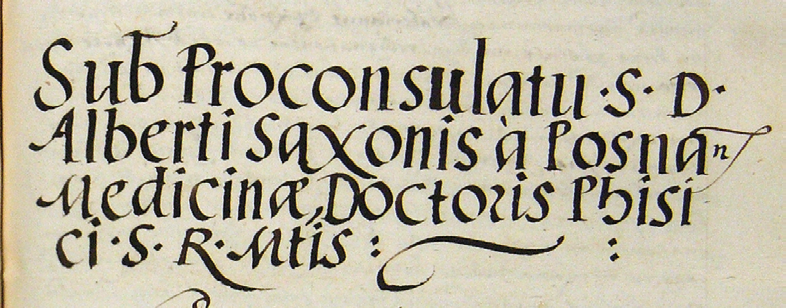 Sub Proconsulatu ·S· D·
Alberti Saxonis à Posnan
Medicinæ, Doctoris Phisi
ci · S · R · Mtis :  :